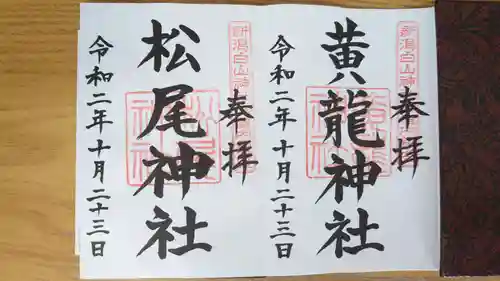 新潟白山神
奉拝
黄龍神社
令和二年十月二十三日
新潟白山神
奉拝
松尾神社
令和二年十月二十三日